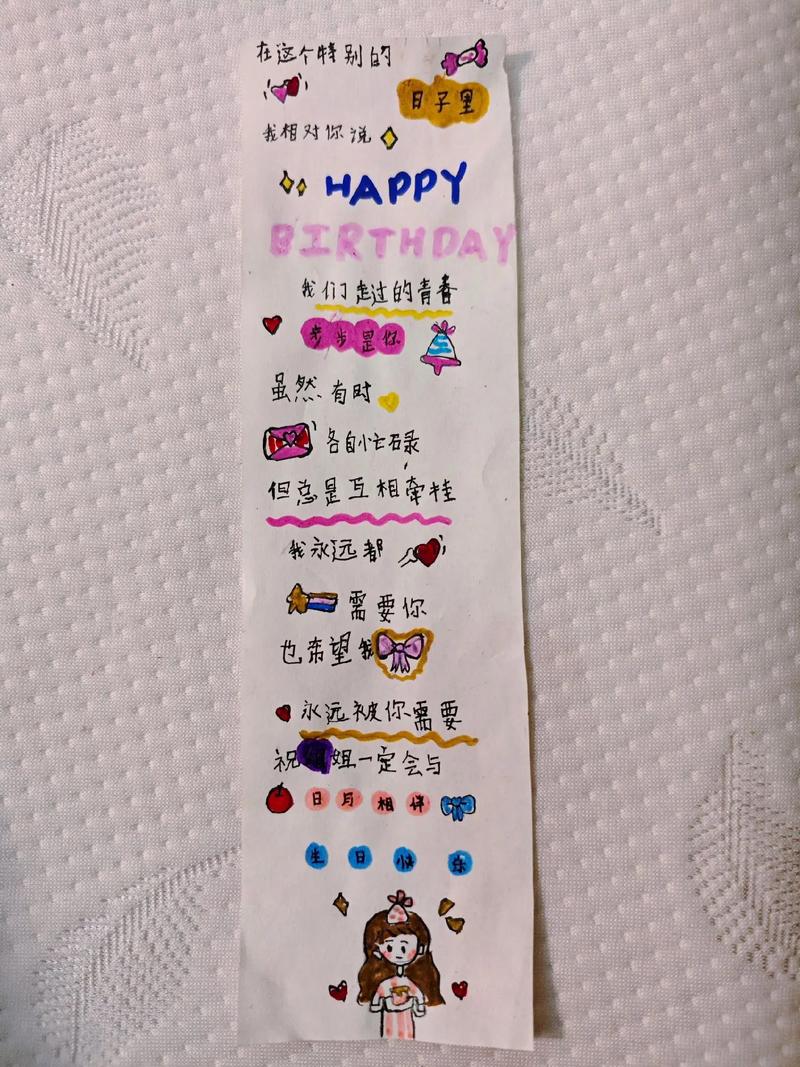 在这个特别的
日子里
我相对你说
HAPPY
BIRTHDAY
我们走过的青春
步步是你
虽然有时
各自忙碌
但总是互相牵挂
我永远都
需要你
也希望我
永远被你需要
祝姐一定会与
日月相伴
生日快乐